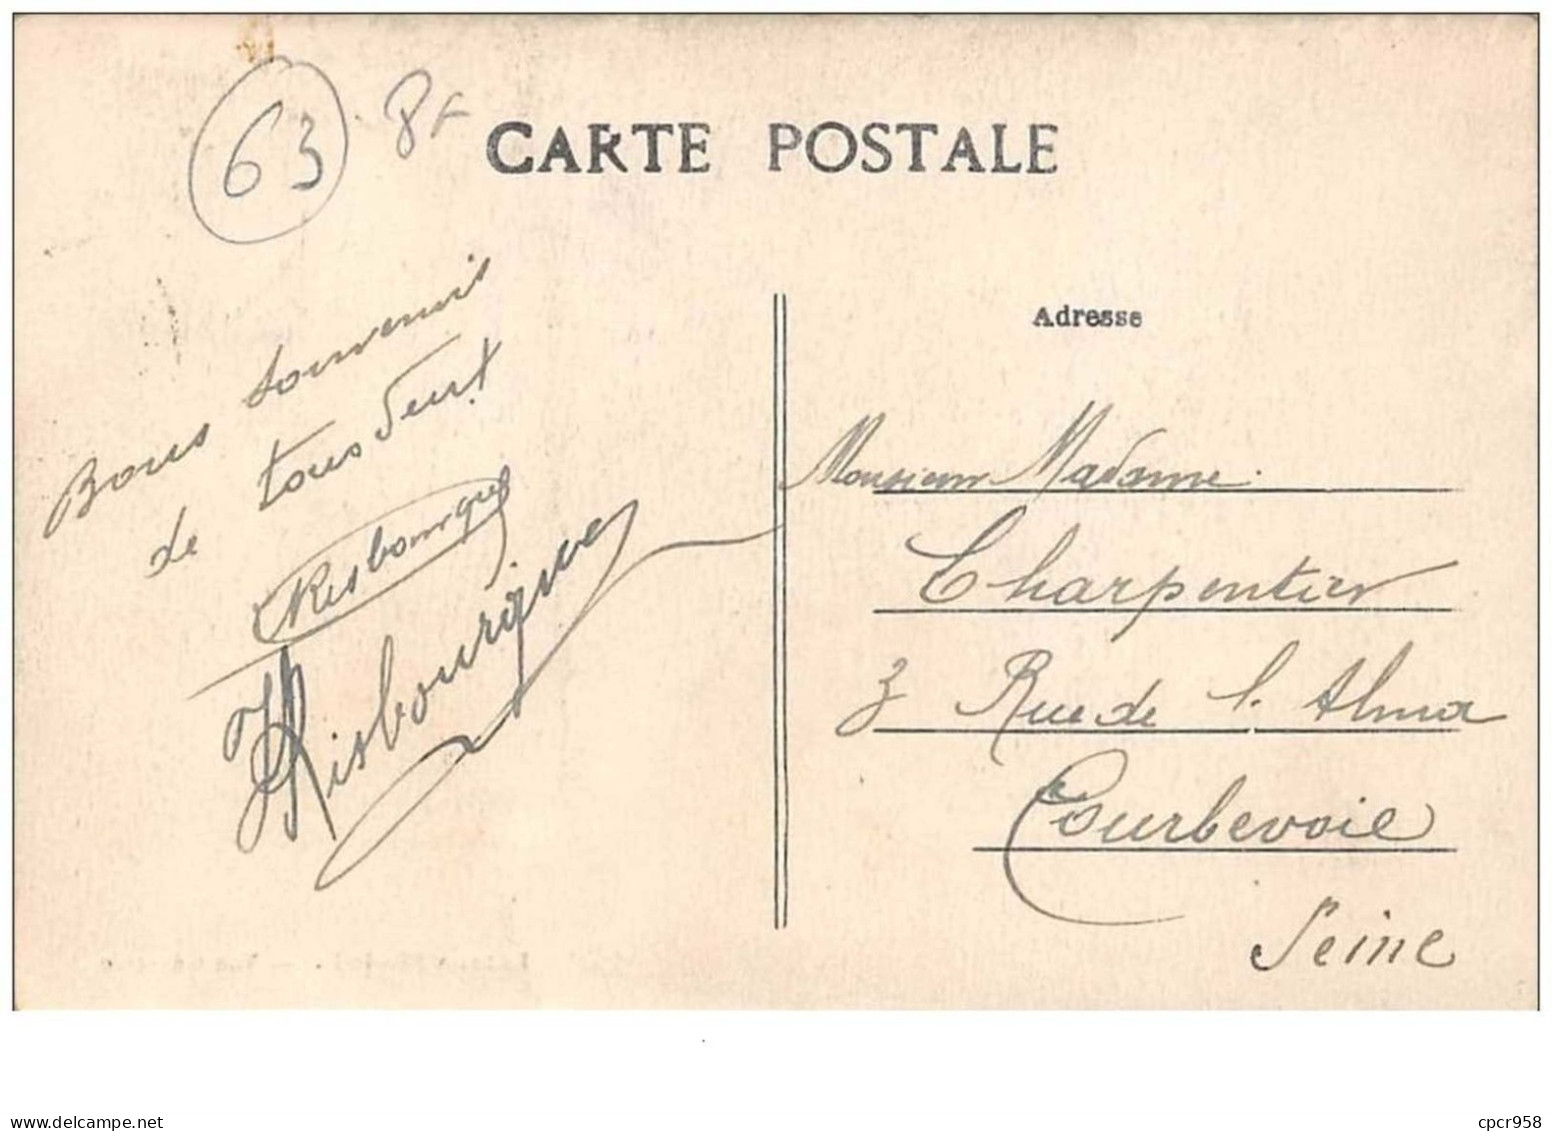 63 8F
CARTE POSTALE
Bons souvenirs
de tous deux
Risbourgue
Risbourgue
Adresse
Monsieur Madame
Charpentier
3 Rue de l. Alma
Courbevoie
Seine
www.delcampe.net
cpcr958